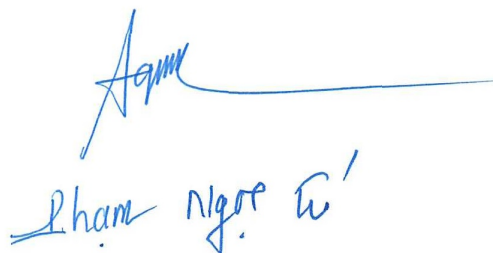 Phạm Ngọc Tú